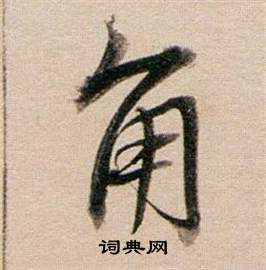 角
词典网